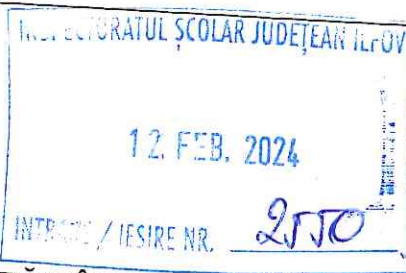 INSPECTORATUL ȘCOLAR JUDEȚEAN ILFOV
12. FEB. 2024
INTRARE / IESIRE NR. 2550